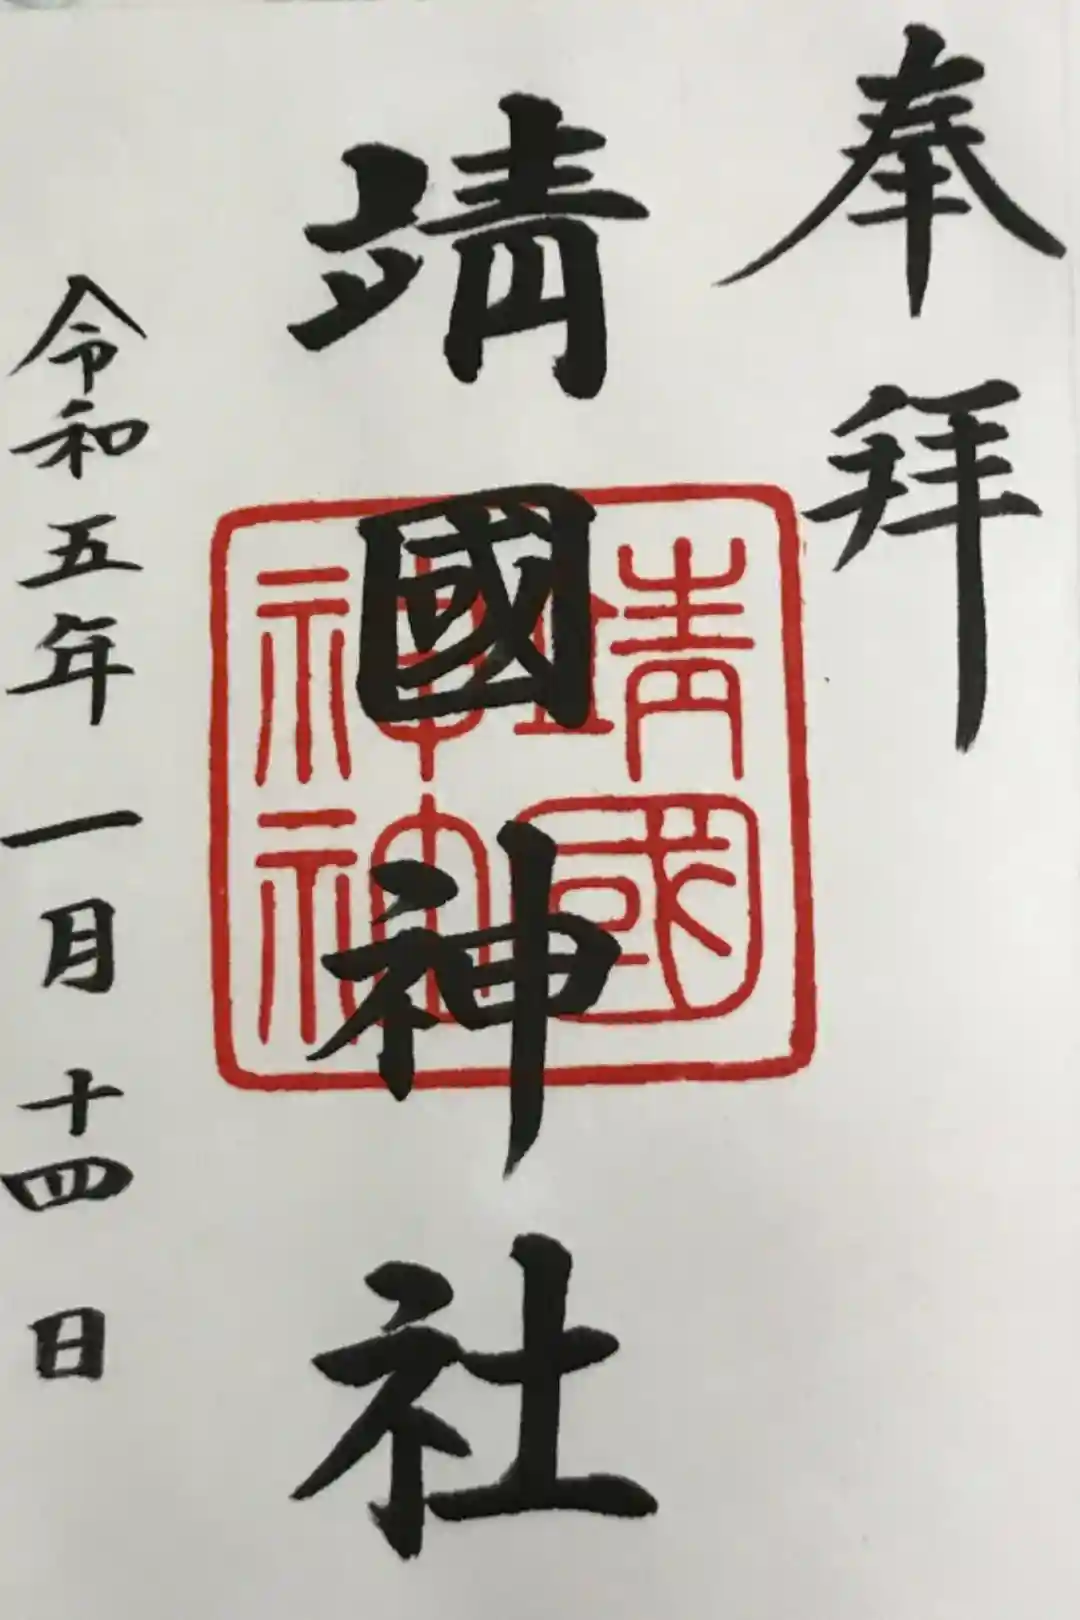 奉拝
靖國神社
靖國
神社
令和五年一月十四日